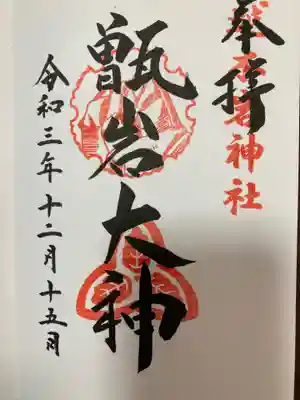 奉拝
神社
甑岩大神
令和三年十二月十五日